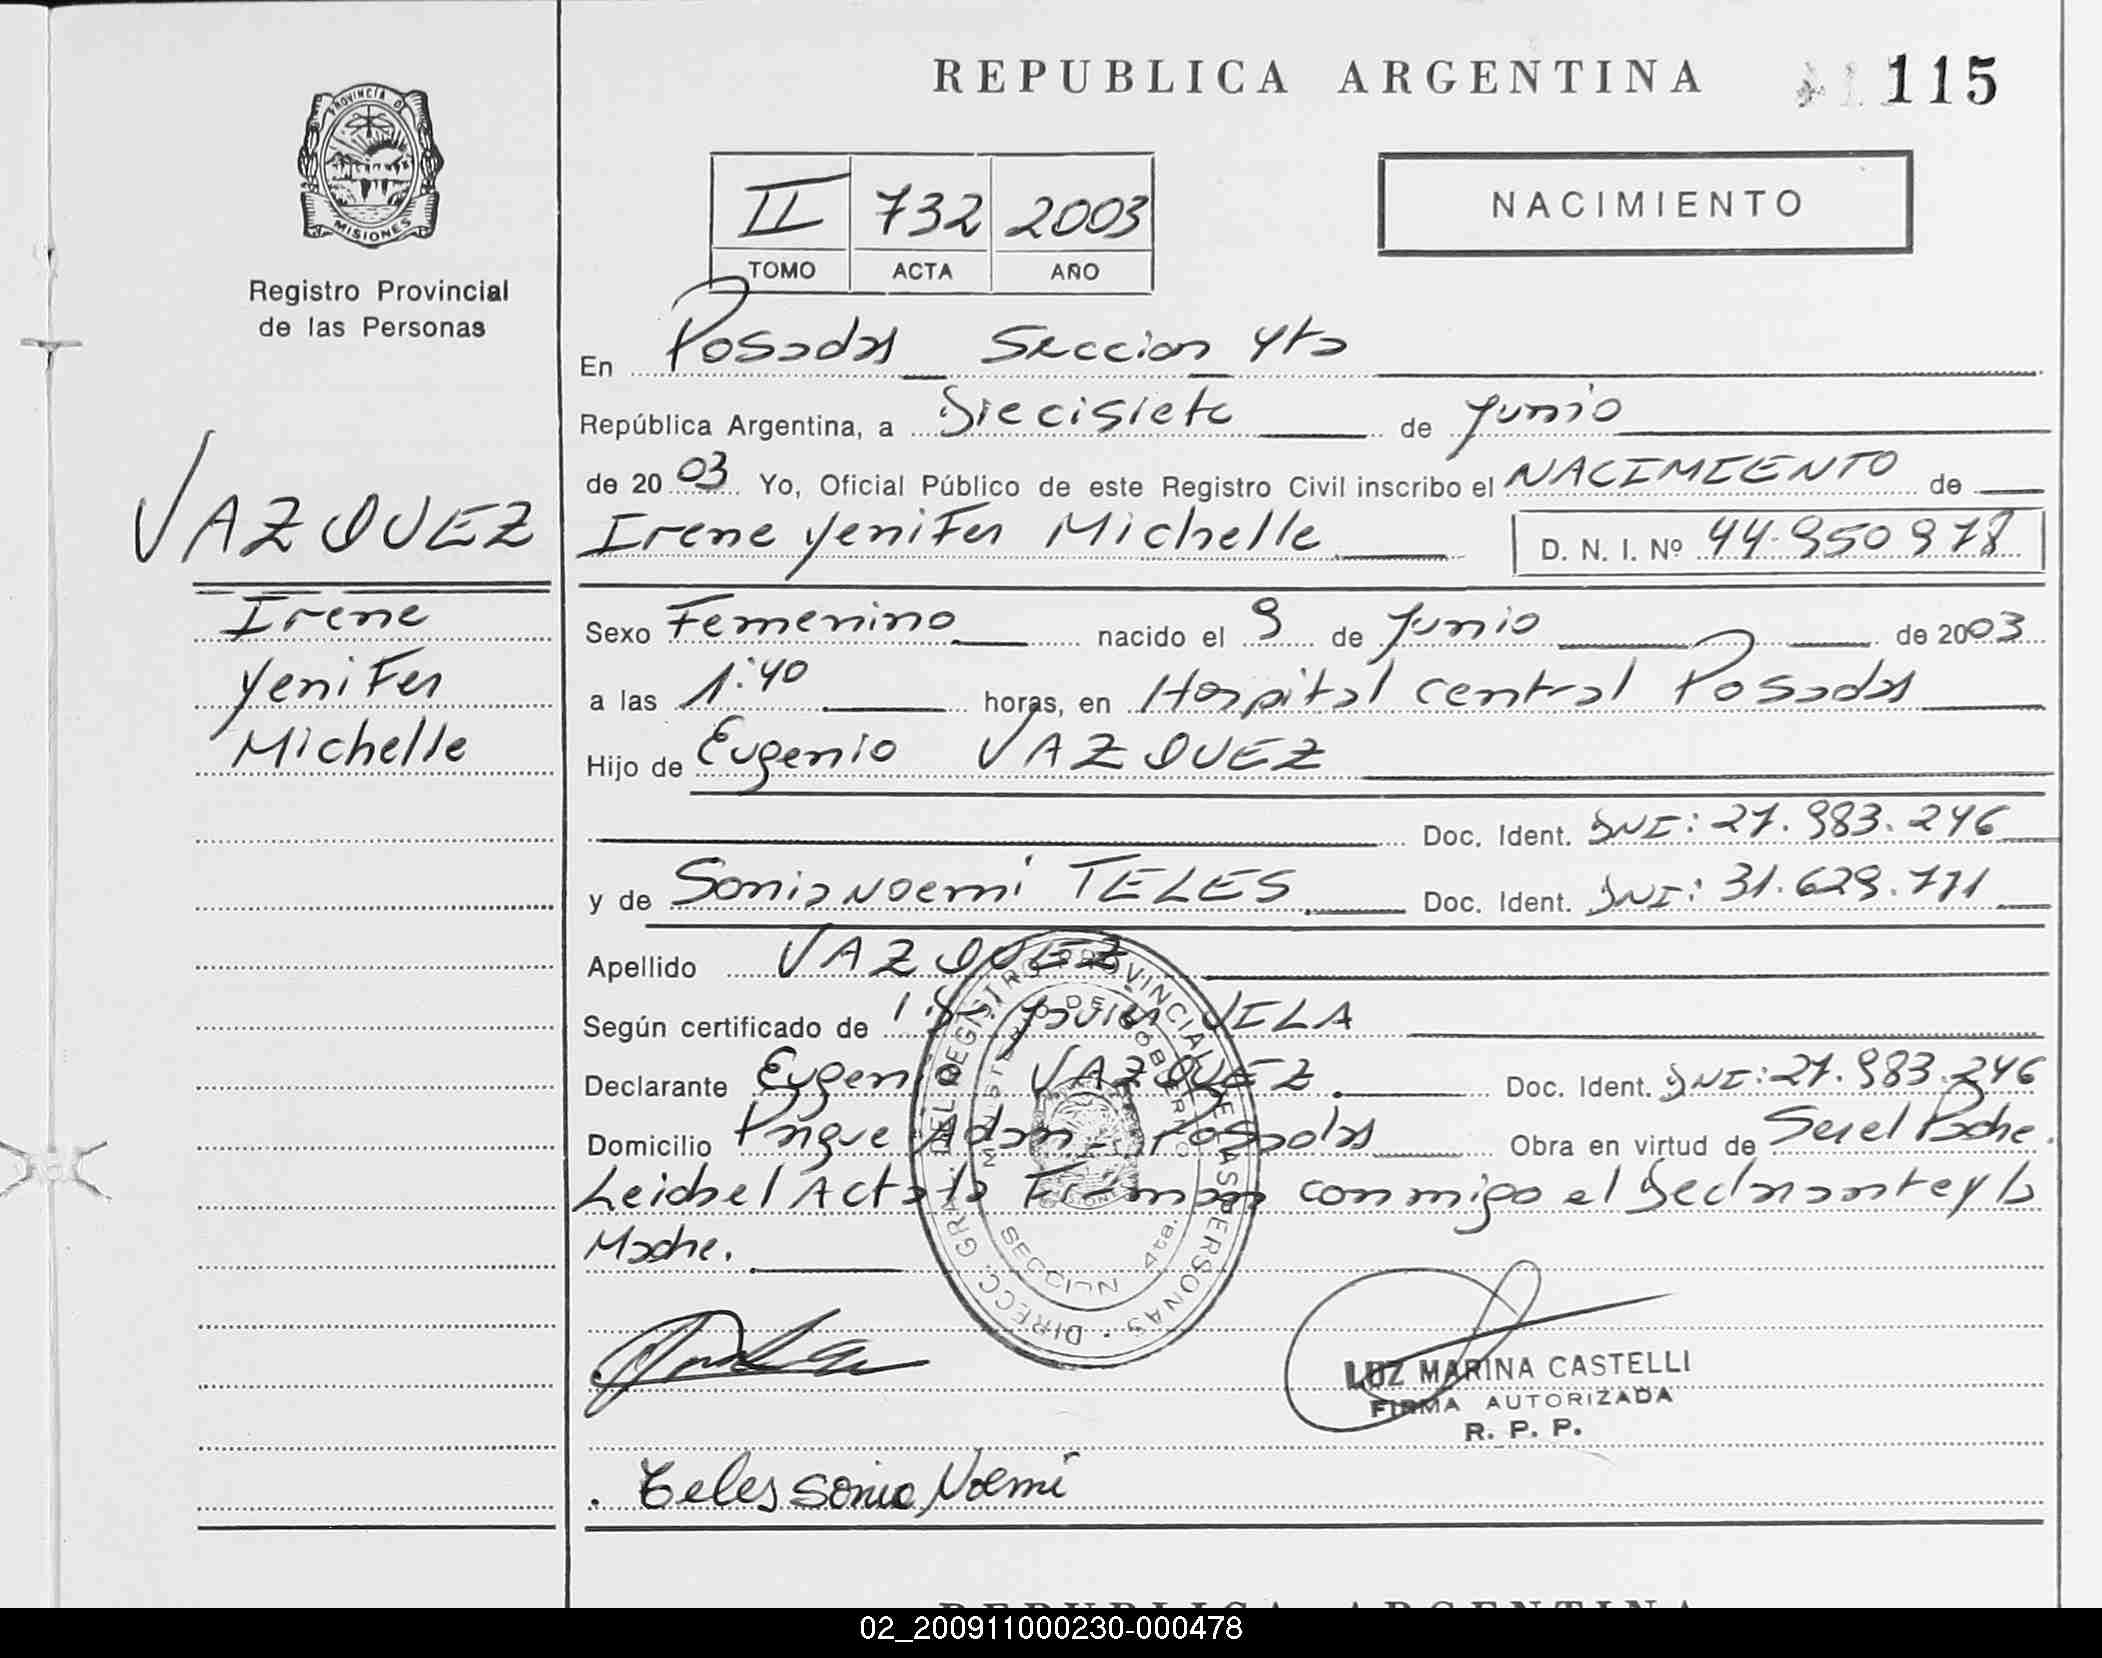 REPUBLICA ARGENTINA 115
PROVINCIA D
MISIONES
Registro Provincial
de las Personas
II 732 2003
TOMO ACTA AÑO
NACIMIENTO
En Posadas Seccion 4ta
República Argentina, a Diecisiete de Junio
de 2003 Yo, Oficial Público de este Registro Civil inscribo el NACIMIENTO de
VAZQUEZ
Irene Yenifer Michelle D. N. I. Nº 44.950978
Irene
Yenifer
Michelle
Sexo Femenino nacido el 9 de Junio de 2003
a las 1:40 horas, en Hospital central Posadas
Hijo de Eugenio VAZQUEZ
Doc. Ident. DNI: 27.983.246
y de Sonia Noemi TELES Doc. Ident. DNI: 31.629.771
Apellido VAZQUEZ
Según certificado de Javier VELA
Declarante Eugenio VAZQUEZ Doc. Ident. DNI: 27.983.246
Domicilio Pque Adam - Posadas Obra en virtud de Ser el Padre.
Leida el Acta la Firman conmigo el Declarante y la
Madre.
DIRECC. GRAL. DEL REGISTRO PROVINCIAL DE LAS PERSONAS
MINISTERIO DE GOBIERNO
SECCION 4ta.
LUZ MARINA CASTELLI
FIRMA AUTORIZADA
R. P. P.
Teles Sonia Noemi
REPUBLICA ARGENTINA
02_200911000230-000478